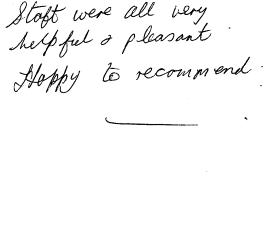 Staff were all very
helpful & pleasant.
Happy to recommend.